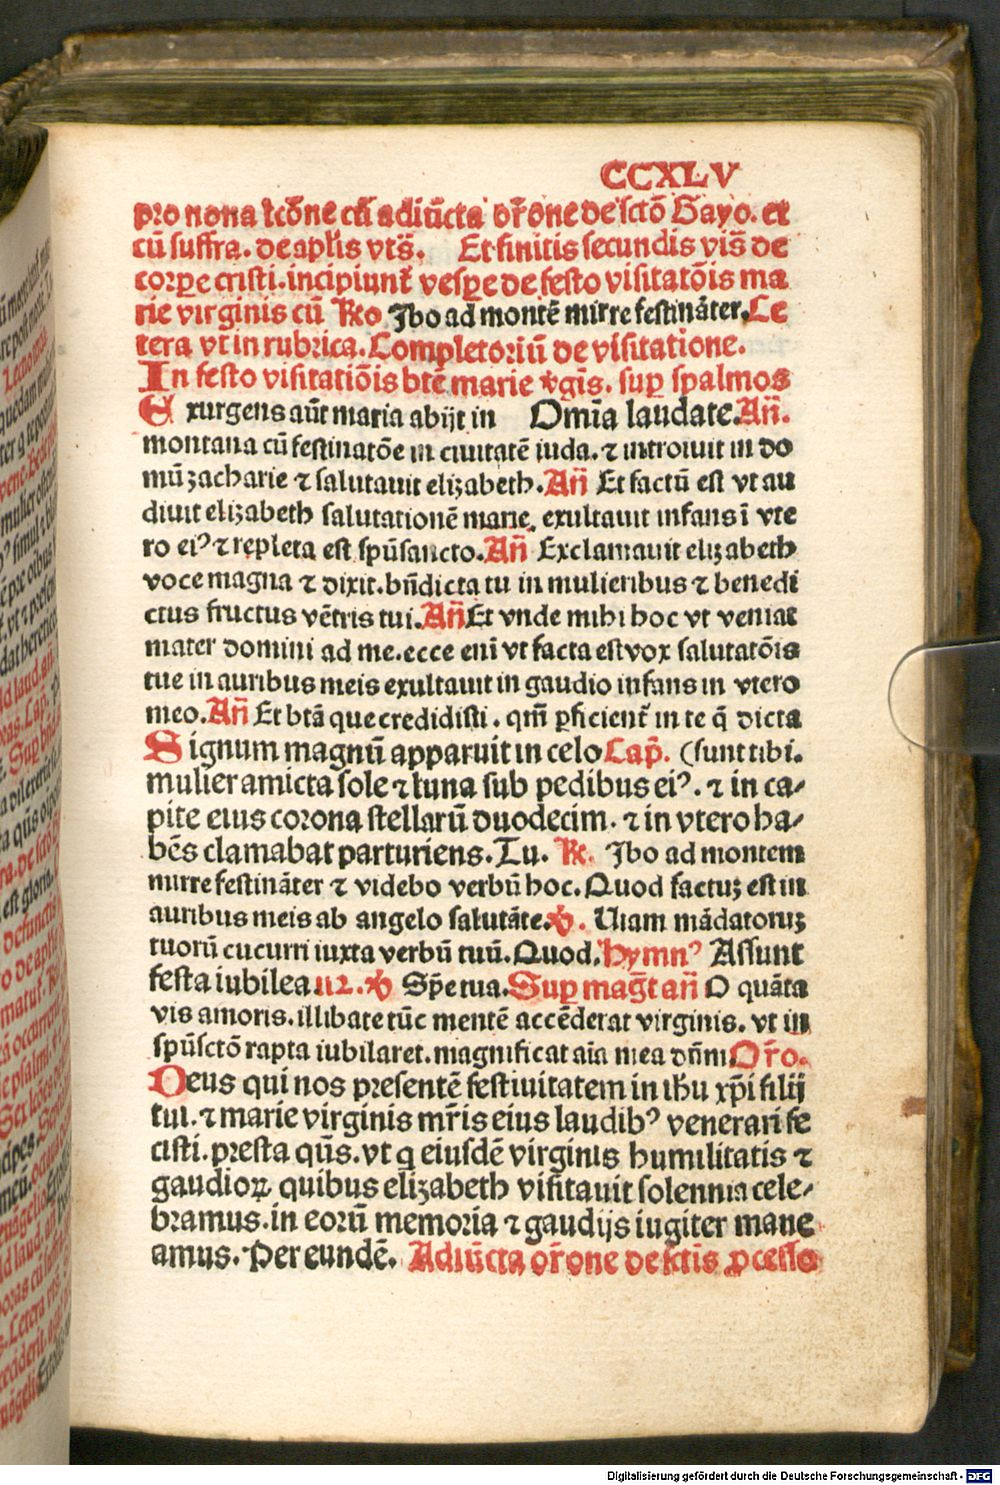 CCXLV
pro nona lcõne cũ adiũcta or̃one de sctõ Gayo. et
cũ suffra. de aplis vts̃. Et finitis secundis vis̃ de
corpe cristi. incipiunt̃ vespe de festo visitatõis ma
rie virginis cũ Rx̃o Jbo ad montẽ mirre festinãter. Ce
tera vt in rubrica. Completoriũ de visitatione.
In festo visitatiõis btẽ marie v̾gis. sup spalmos
Exurgens aũt maria abijt in Omĩa laudate. Añ.
montana cũ festinatõe in ciuitatẽ iuda. ⁊ introiuit in do
mũ zacharie ⁊ salutauit elizabeth. Añ Et factũ est vt au
diuit elizabeth salutationẽ marie. exultauit infans ĩ vte
ro eiꝰ ⁊ repleta est spũsancto. Añ Exclamauit elizabeth
voce magna ⁊ dixit. bñdicta tu in mulieribus ⁊ benedi
ctus fructus vẽtris tui. Añ Et vnde mihi hoc vt veniat
mater domini ad me. ecce enĩ vt facta est vox salutatõis
tue in auribus meis exultauit in gaudio infans in vtero
meo. Añ Et btã que credidisti. qm̃ ꝑficient̃ in te q̃ dicta
Signum magnũ apparuit in celo Cap̃. (sunt tibi.
mulier amicta sole ⁊ luna sub pedibus eiꝰ. ⁊ in ca/
pite eius corona stellarũ duodecim. ⁊ in vtero ha/
bẽs clamabat parturiens. Tu. ℞. Jbo ad montem
mirre festinãter ⁊ videbo verbũ hoc. Quod factuꝫ est in
auribus meis ab angelo salutãte. ℣. Uiam mãdatoruꝫ
tuorũ cucurri iuxta verbũ tuũ. Quod. Hymnꝰ Assunt
festa iubilea 112. ℣ Spẽ tua. Sup mag̃t añ O quãta
vis amoris. illibate tũc mentẽ accẽderat virginis. vt in
spũsctõ rapta iubilaret. magnificat aĩa mea dñm Or̃o.
Deus qui nos presentẽ festiuitatem in ihu xp̃i filij
tui. ⁊ marie virginis mr̃is eius laudibꝰ venerari fe
cisti. presta qũs. vt q eiusdẽ virginis humilitatis ⁊
gaudioꝝ quibus elizabeth visitauit solennia cele/
bramus. in eorũ memoria ⁊ gaudijs iugiter mane
amus. Per eundẽ. Adiũcta or̃one de sctis ꝓcesso
Digitalisierung gefördert durch die Deutsche Forschungsgemeinschaft - DFG